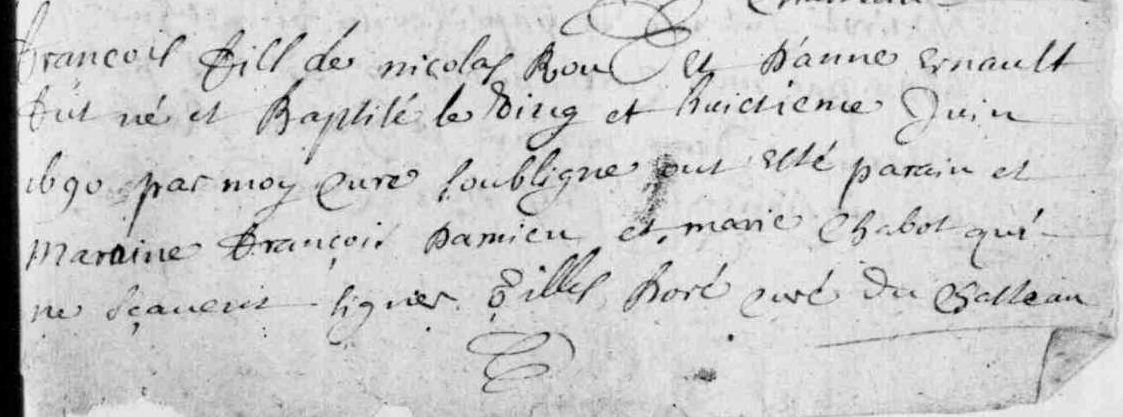 françois fills de nicolas Rou et d'anne ernault
fut né et Baptisé le cinq et huictieme Juin
1690 par moy curé soubsigné ont esté parain et
Maraine françois damien et marie chabot qui
ne sçavent signer gilles Boré curé du chasteau